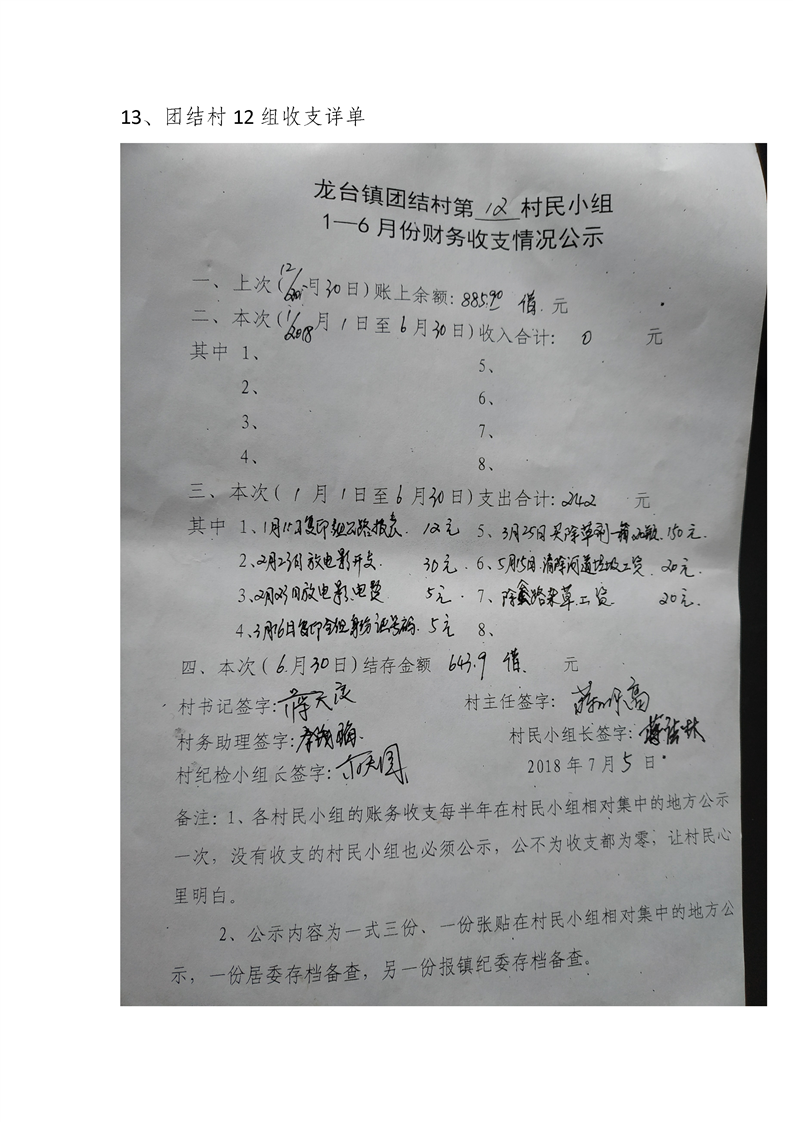 13、团结村 12 组收支详单
龙台镇团结村第 12 村民小组
1—6 月份财务收支情况公示
一、上次(12/201 月30日)账上余额: 885.90 借 元
二、本次(1/2018 月 1 日至 6 月 30 日)收入合计: 0 元
其中 1、 5、
2、 6、
3、 7、
4、 8、
三、本次( 1 月 1 日至 6 月 30 日)支出合计: 242 元
其中 1、1月15日复印 公路报表. 12元 5、3月25日买除草剂一箱 150元.
2、2月23日放电影开支. 30元. 6、5月15日.清除河道垃圾工资. 20元.
3、2月23日放电影电费 5元. 7、除 路杂草工资 20元.
4、3月16日复印全组身份证号码. 5元 8、
四、本次( 6 月 30 日)结存金额 643.9 借. 元
村书记签字: 村主任签字:
村务助理签字: 村民小组长签字:
村纪检小组长签字: 2018 年 7 月 5 日
备注: 1、各村民小组的账务收支每半年在村民小组相对集中的地方公示
一次，没有收支的村民小组也必须公示，公不为收支都为零，让村民心
里明白。
2、公示内容为一式三份、一份张贴在村民小组相对集中的地方公
示，一份居委存档备查，另一份报镇纪委存档备查。